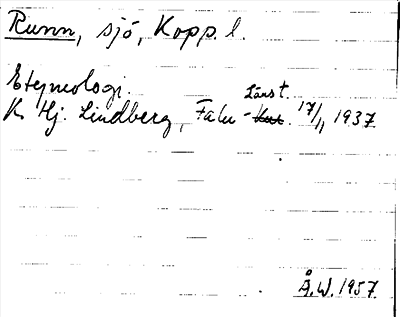 Runn, sjö, Kopp. l.
Etymologi.
K. Hj. Lindberg, Falu-Läns t. 17/11 1937
Å.W. 1957